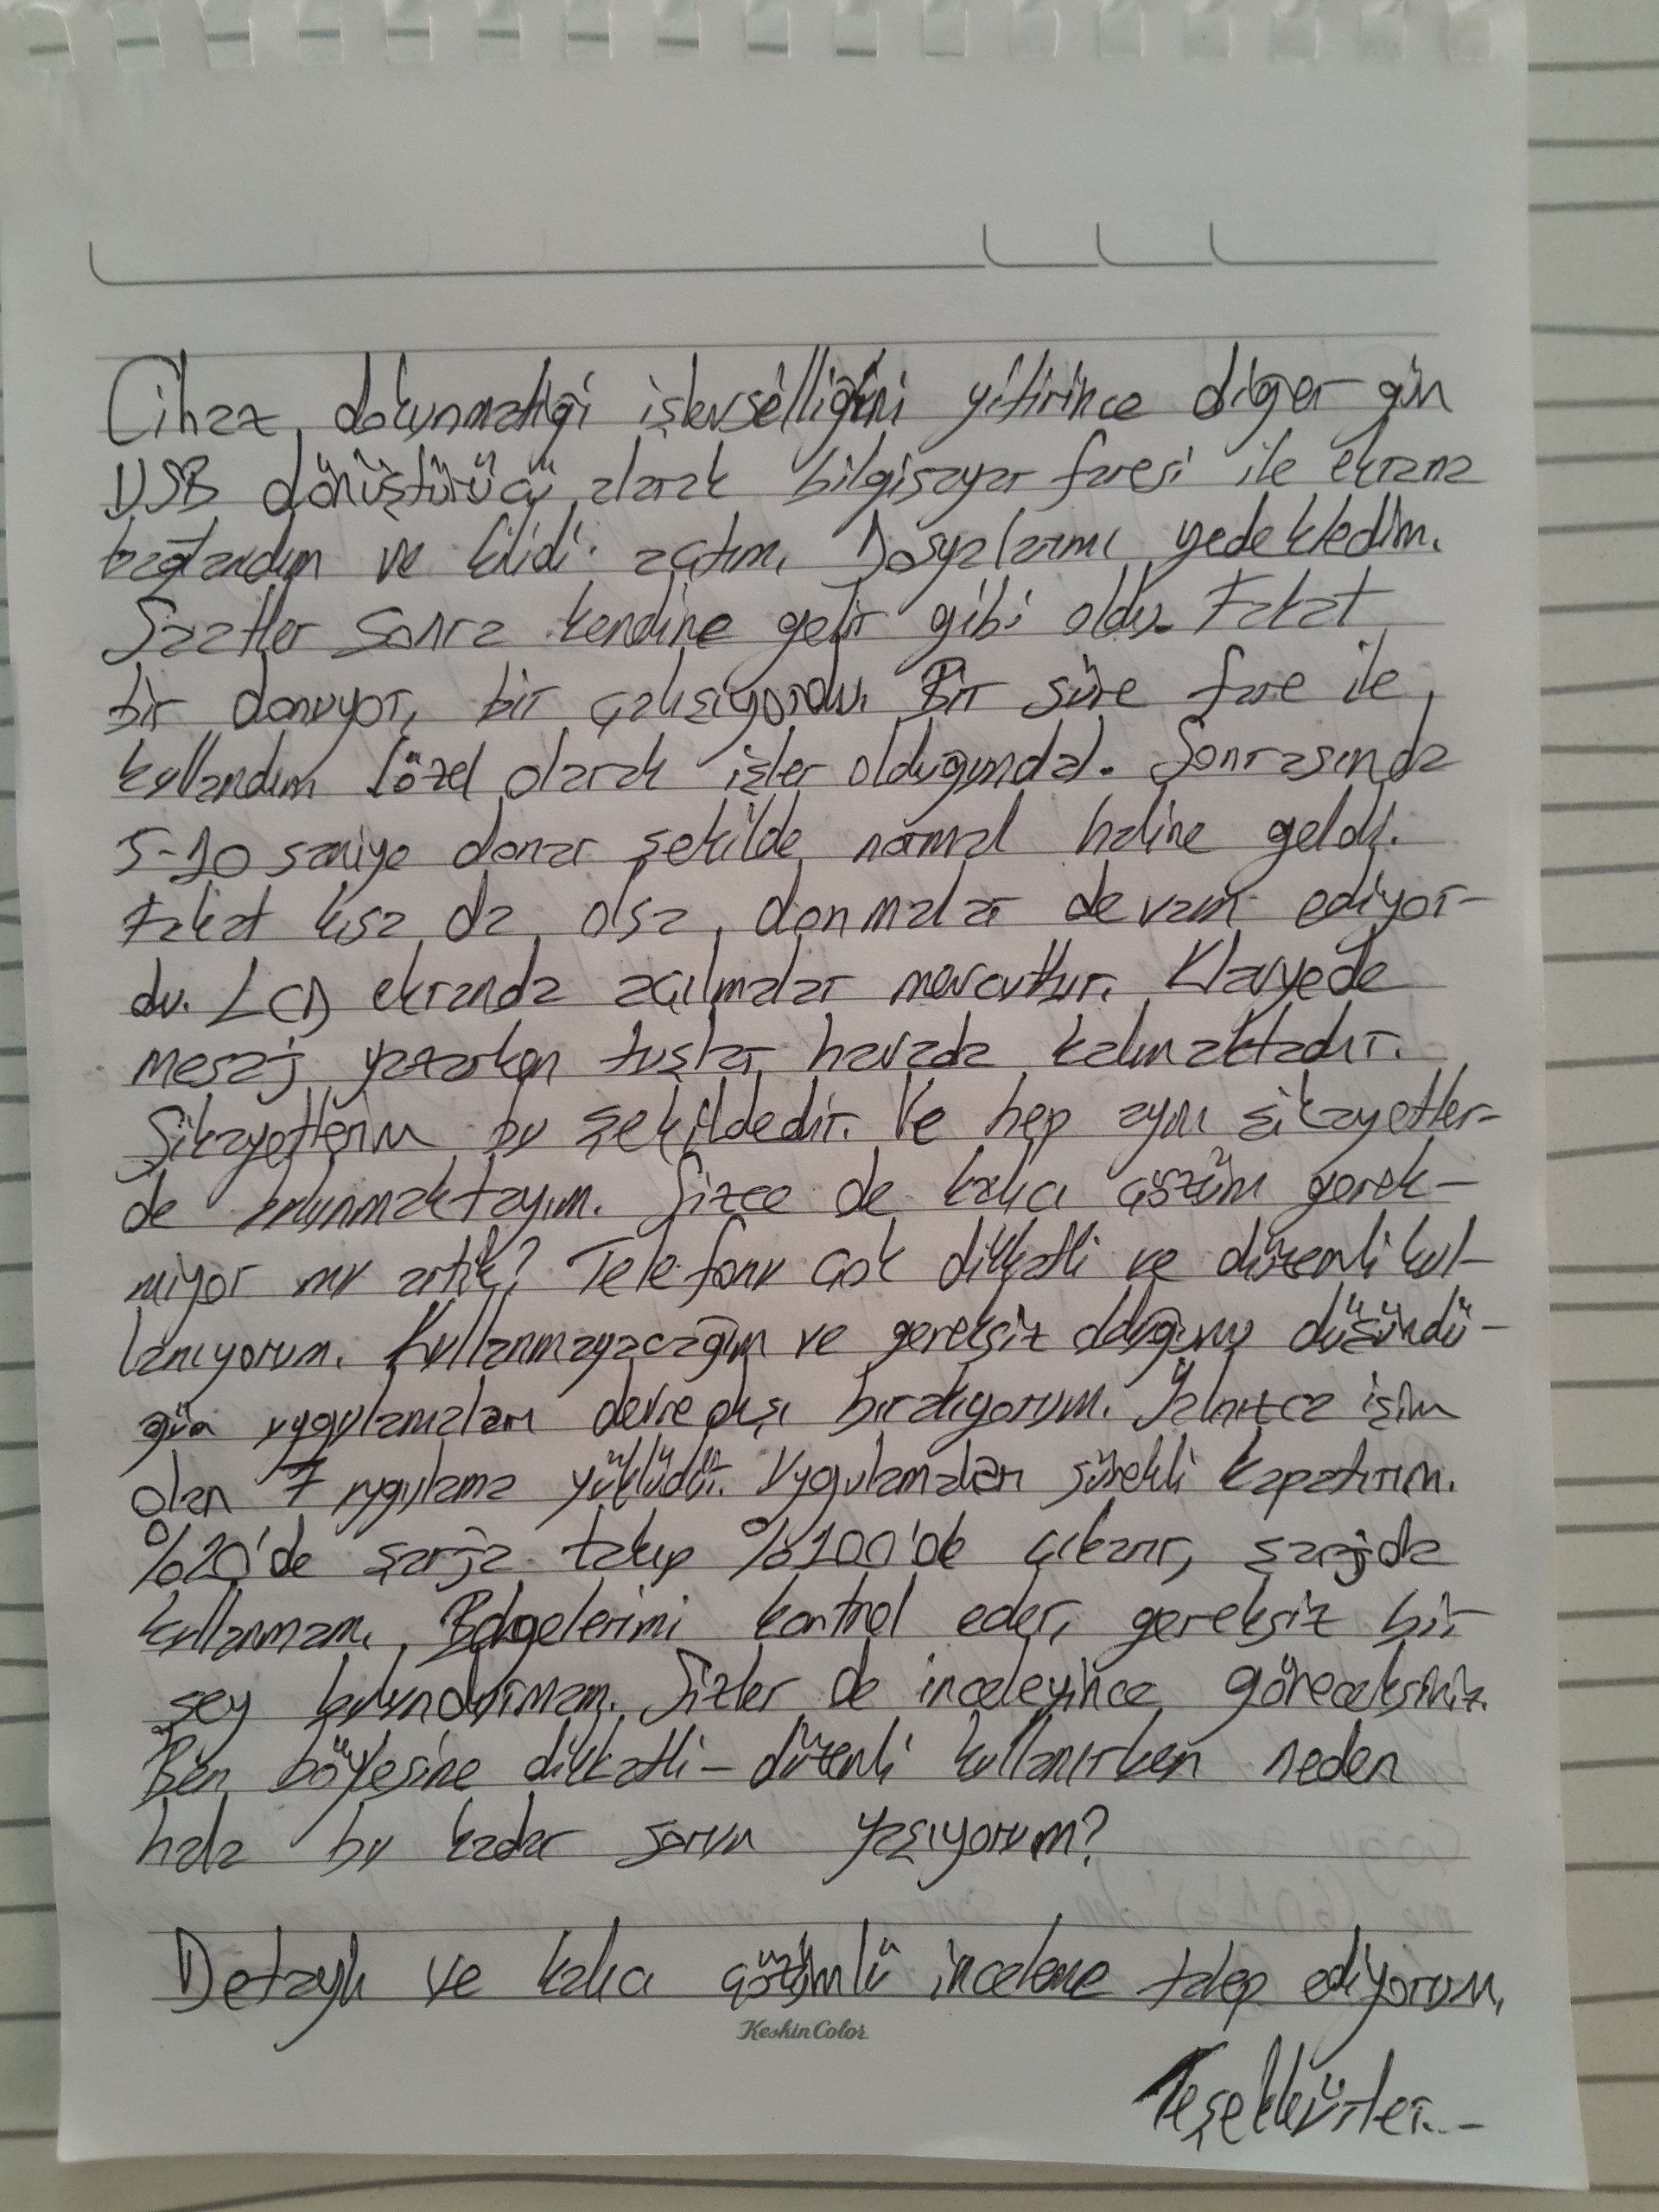 Cihaz, dokunmatiği işlevselliğini yitirince diğer gün
USB dönüştürücü alarak bilgisayar faresi ile ekrana
bağlandım ve kilidi açtım. Dosyalarımı yedekledim.
Saatler sonra kendine gelir gibi oldu. Fakat
bir donuyor, bir çalışıyordu. Bir süre fare ile
kullandım (özel olarak işler olduğunda). Sonrasında
5-10 saniye donar şekilde normal haline geldi.
Fakat kısa da olsa donmalar devam ediyor-
du. LCD ekranda açılmalar mevcuttur. Klavyede
mesaj yazarken tuşlar havada kalmaktadır.
Şikayetlerim bu şekildedir. Ve hep aynı şikayetler-
de bulunmaktayım. Sizce de kalıcı çözüm gerek-
miyor mu artık? Telefonu çok dikkatli ve düzenli kul-
lanıyorum. Kullanmayacağım ve gereksiz olduğunu düşündü-
ğüm uygulamaları devre dışı bırakıyorum. Yalnızca işim
olan 7 uygulama yüklüdür. Uygulamaları sürekli kapatırım.
%20'de şarja takıp %100'de çıkarır, şarjda
kullanmam. Belgelerimi kontrol eder, gereksiz bir
şey bulundurmam. Sizler de inceleyince göreceksiniz.
Ben böylesine dikkatli-düzenli kullanırken neden
hala bu kadar sorun yaşıyorum?
Detaylı ve kalıcı çözümlü inceleme talep ediyorum.
KeskinColor
Teşekkürler..-